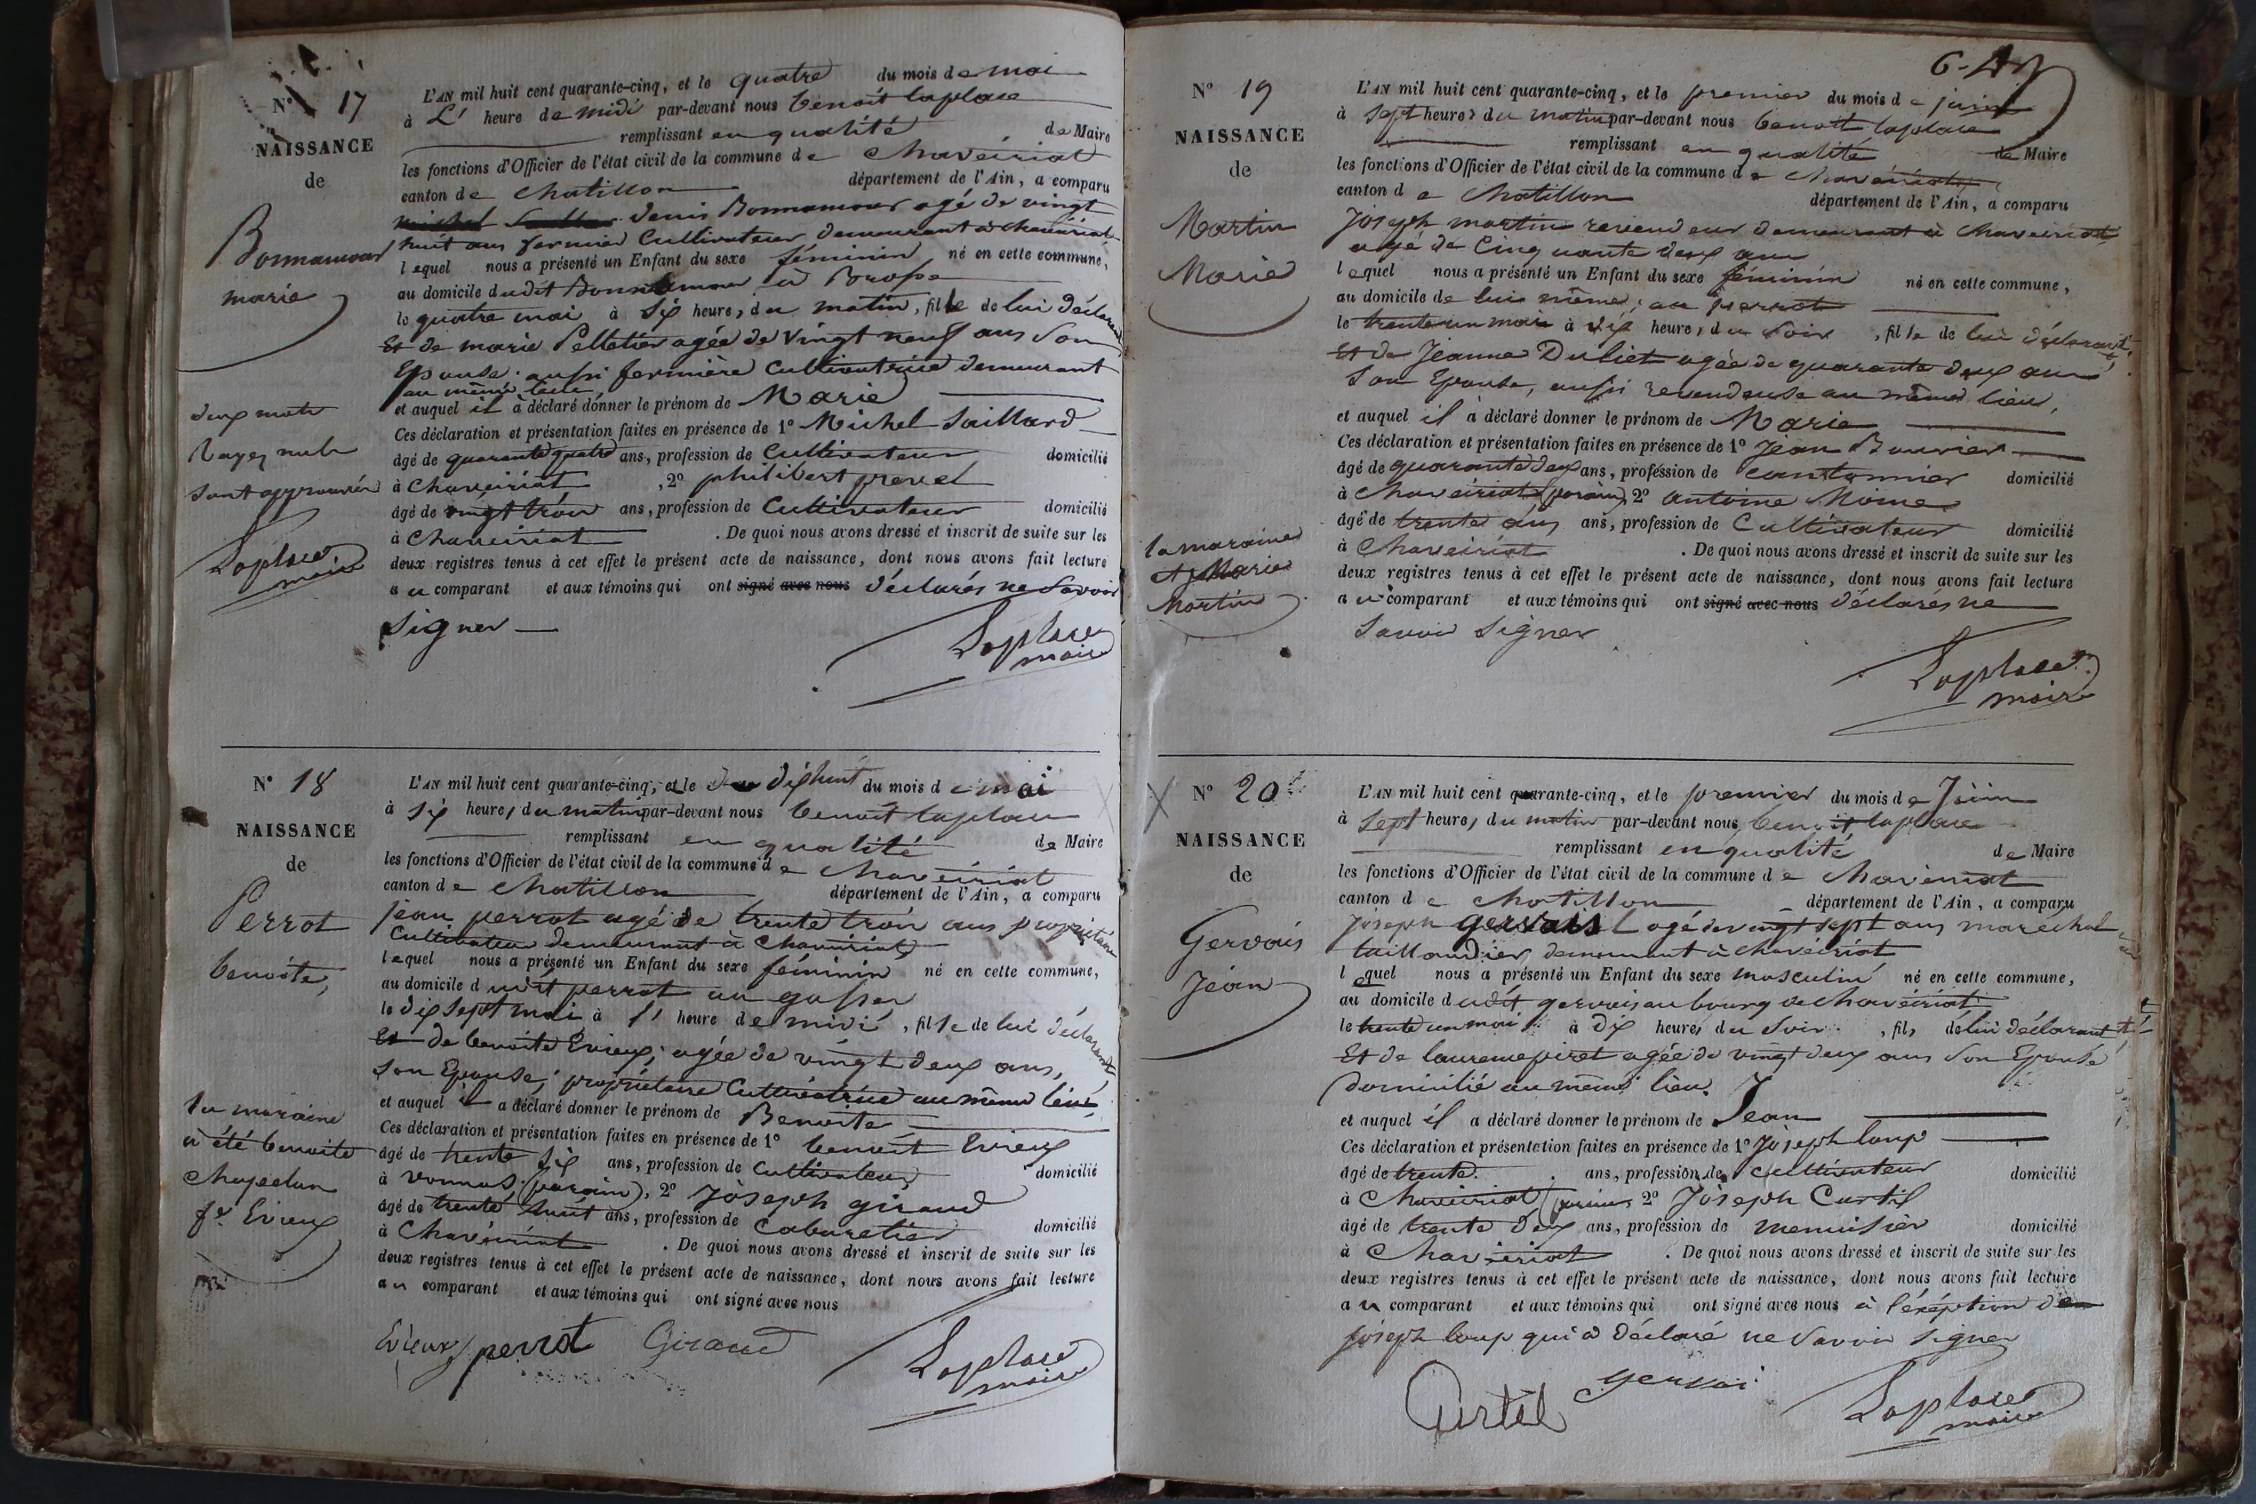 N° 17
NAISSANCE
de
Bonnamour
marie
deux mots
rayez nuls
sont approuvés
Laplace
maire
L'AN mil huit cent quarante-cinq, et le quatre du mois de mai
à L' heure de midi par-devant nous benoit laplace
remplissant en qualité de Maire
les fonctions d'Officier de l'état civil de la commune de chaveiriat
canton de chatillon département de l'Ain, a comparu
michel denis Bonnamour agé de vingt
huit ans fermier Cultivateur demeurant à chaveiriat
lequel nous a présenté un Enfant du sexe féminin né en cette commune,
au domicile dudit Bonnamour à
le quatre mai à six heures du matin, fille de lui déclarant
Et de marie Pelletier agée de vingt neuf ans son
Epouse aussi fermière Cultivatrice demeurant
au même lieu
et auquel il a déclaré donner le prénom de Marie
Ces déclaration et présentation faites en présence de 1° Michel Saillard
âgé de quarante quatre ans, profession de Cultivateur domicilié
à Chaveiriat, 2° philibert prevel
âgé de vingt trois ans, profession de Cultivateur domicilié
à Chaveiriat. De quoi nous avons dressé et inscrit de suite sur les
deux registres tenus à cet effet le présent acte de naissance, dont nous avons fait lecture
au comparant et aux témoins qui ont signé avec nous déclarés ne savoir
signer
Laplace
maire
N° 18
NAISSANCE
de
Perrot
benoite,
la maraine
a été benoite
chapelan
fe Evieux
L'AN mil huit cent quarante-cinq, et le dix huit du mois de mai
à six heures du matin par-devant nous benoit laplace
remplissant en qualité de Maire
les fonctions d'Officier de l'état civil de la commune de chaveiriat
canton de chatillon département de l'Ain, a comparu
jean perrot agé de trente trois ans propriétaire
Cultivateur demeurant à Chaveiriat
lequel nous a présenté un Enfant du sexe féminin né en cette commune,
au domicile dudit perrot au
le dix sept mai à l' heure de midi, fille de lui déclarant
Et de benoite Evieux, agée de vingt deux ans,
son Epouse, propriétaire Cultivatrice au même lieu
et auquel il a déclaré donner le prénom de Benoite
Ces déclaration et présentation faites en présence de 1° benoit Evieux
âgé de trente six ans, profession de Cultivateur domicilié
à vonnas (parain), 2° Joseph giraud
âgé de trente huit ans, profession de Cabaretier domicilié
à Chaveiriat. De quoi nous avons dressé et inscrit de suite sur les
deux registres tenus à cet effet le présent acte de naissance, dont nous avons fait lecture
au comparant et aux témoins qui ont signé avec nous
Evieux perrot Giraud
Laplace
maire
N° 19
NAISSANCE
de
Martin
Marie
la maraine
Marie
Martin
L'AN mil huit cent quarante-cinq, et le premier du mois de juin
à sept heures du matin par-devant nous benoit laplace
remplissant en qualité de Maire
les fonctions d'Officier de l'état civil de la commune de chaveiriat
canton de chatillon département de l'Ain, a comparu
Joseph martin revendeur demeurant à chaveiriat
agé de Cinquante deux ans
lequel nous a présenté un Enfant du sexe féminin né en cette commune,
au domicile de lui même, au perrot
le trente un mai à dix heures du soir, fille de lui déclarant,
Et de Jeanne Dubiet agée de quarante deux ans
son Epouse, aussi revendeuse au même lieu,
et auquel il a déclaré donner le prénom de Marie
Ces déclaration et présentation faites en présence de 1° Jean Bouvier
âgé de quarante deux ans, profession de cantonnier domicilié
à chaveiriat (parain) 2° antoine Moine
âgé de trente ans, profession de Cultivateur domicilié
à Chaveiriat. De quoi nous avons dressé et inscrit de suite sur les
deux registres tenus à cet effet le présent acte de naissance, dont nous avons fait lecture
au comparant et aux témoins qui ont signé avec nous déclarés ne
savoir signer
Laplace
maire
N° 20
NAISSANCE
de
Gervais
Jean
L'AN mil huit cent quarante-cinq, et le premier du mois de Juin
à sept heures du matin par-devant nous benoit laplace
remplissant en qualité de Maire
les fonctions d'Officier de l'état civil de la commune de chaveiriat
canton de chatillon département de l'Ain, a comparu
joseph gervais agé de vingt sept ans maréchal
taillandier, demeurant à chaveiriat
lequel nous a présenté un Enfant du sexe masculin né en cette commune,
au domicile dudit gervais au bourg de chaveiriat
le trente un mai à dix heures du soir, fils de lui déclarant
Et de laurence piret agée de vingt deux ans son Epouse
domicilié au même lieu.
et auquel il a déclaré donner le prénom de Jean
Ces déclaration et présentation faites en présence de 1° Joseph loup
âgé de trente ans, profession de cultivateur domicilié
à Chaveiriat (parain) 2° Joseph Curtil
âgé de trente deux ans, profession de menuisier domicilié
à Chaveiriat. De quoi nous avons dressé et inscrit de suite sur les
deux registres tenus à cet effet le présent acte de naissance, dont nous avons fait lecture
au comparant et aux témoins qui ont signé avec nous à l'éxéption de
joseph loup qui a déclaré ne savoir signer
Curtil gervai
Laplace
maire